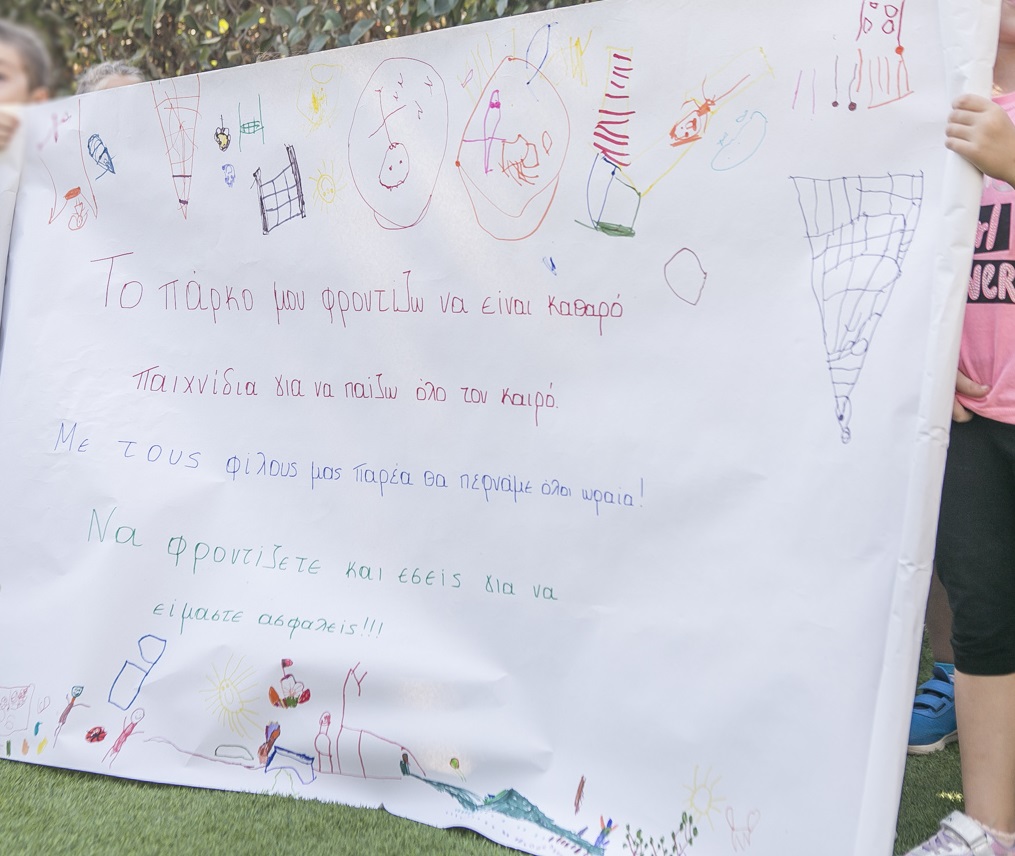 Το πάρκο μου φροντίζω να είναι καθαρό
Παιχνίδια για να παίζω όλο τον καιρό.
Με τους φίλους μας παρέα θα περνάμε όλοι ωραία!
Να φροντίζετε και εσείς για να
είμαστε ασφαλείς!!!